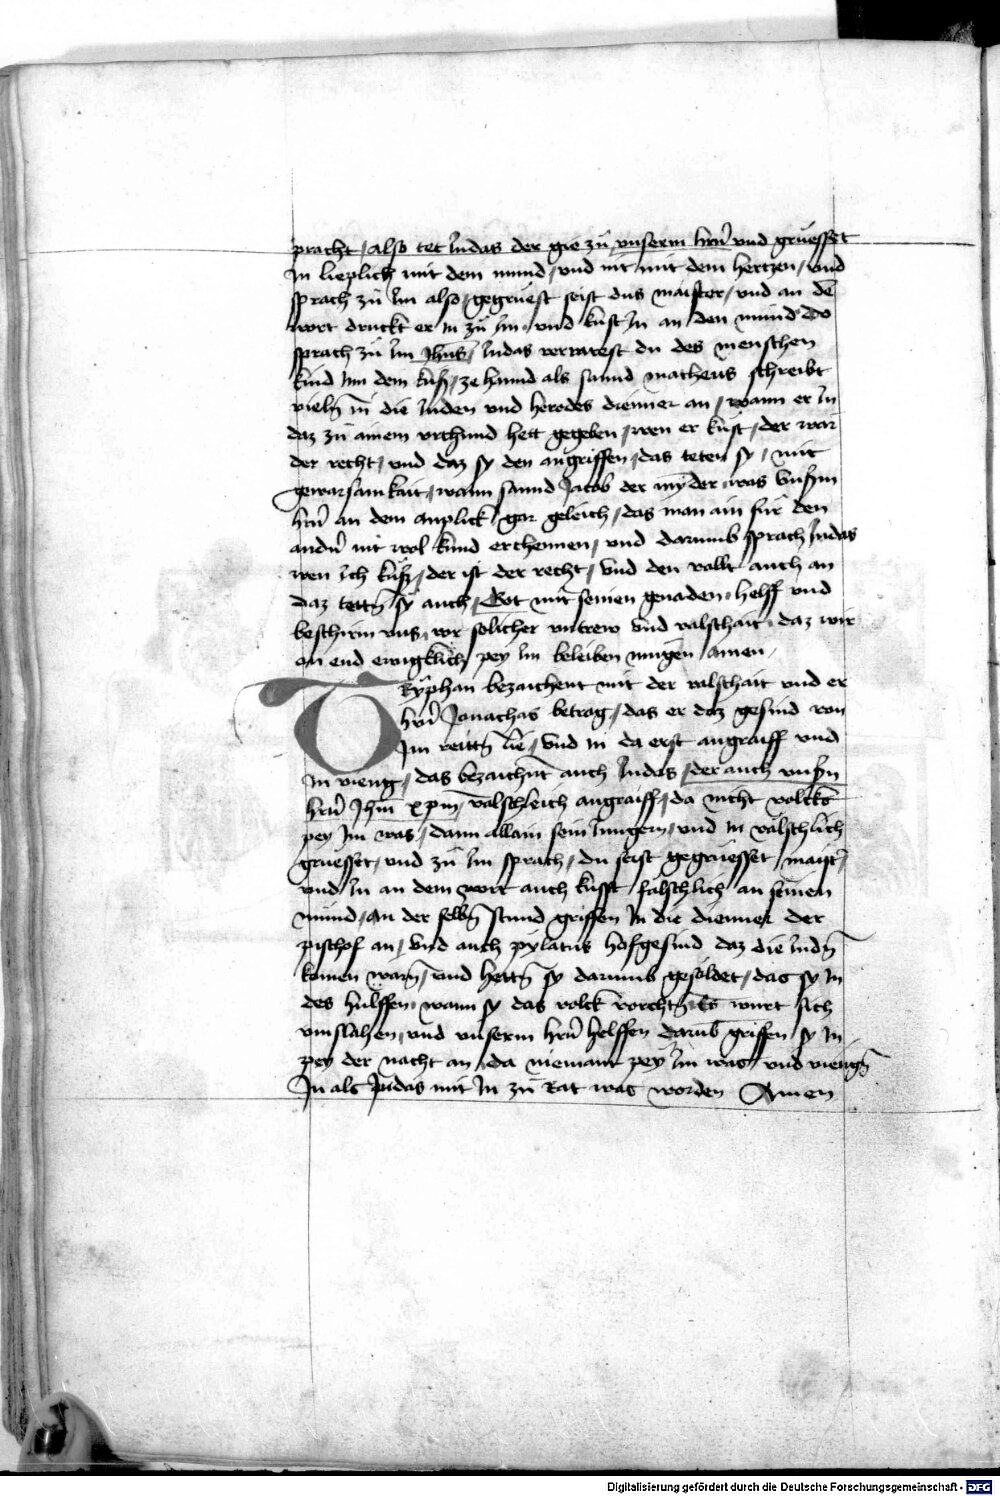 pracht / also tet Judas der gie zů unserm hrn̄ und gruesset
In lieplich mit dem mund / und nit mit dem hertzen / und
sprach zů Im also / gegruest seist dus maister / und an dē
wort druckt er In zů Im und kůst In an den mund Do
sprach zů Im Jhus / Judas verratest du des menschen
kind Im dem kuß / ze hannd als sannd matheus schreibt
vieln̄ in die Juden und herodes diener an / wann er In
daz zů ainem urchund hett gegeben / wen er kust / der wär
der recht / und daz sy den angriffen / das teten sy / mit
gewarsamkait / wann sannd Jacob der mynder was unserm
hrn̄ an dem anplick gar geleich / das man ain für den
andn̄ nit wol kund erchennen / und darumb sprach Judas
wen Ich kůß / der ist der recht / und den vallt auch an
daz tettn̄ sy auch / Got mit seinen gnaden helff und
beschirm uns vor solicher untrew und valschait daz wir
on end ewigklich pey Im beleiben mugen amen /
Tryphan bezaichent mit der valschait und er
hrn̄ Jonathas betrog / das er daz gesind von
Im reittn̄ lie / und in da erst angraiff und
In vieng / das bezaichnt auch Judas / der auch unsern
hrn̄ Jhm xpm / valschleich angraiff / da nicht volcks
pey Im was / dann allain sein Jungern / und In välschlich
gruesset / und zů Im sprach / du seist gegruesset maist̄
und In an dem wort auch kůsst fälschlich an seinen
mund / An der selbn̄ stund griffen In die diener der
pischof an / und auch pylatus hofgesind daz die Judn̄
komen warn̄ / und hettn̄ sy darumb gesoldet / das sy In
des hulffen / wann sy das volck vorchtn̄ Es wurt sich
umslahen / und unserm hrn̄ helffen darūb griffen sy In
pey der nacht an / da niemant pey Im was / und viengn̄
In als Judas mit In zů Rat was worden Amen
Digitalisierung gefördert durch die Deutsche Forschungsgemeinschaft - DFG